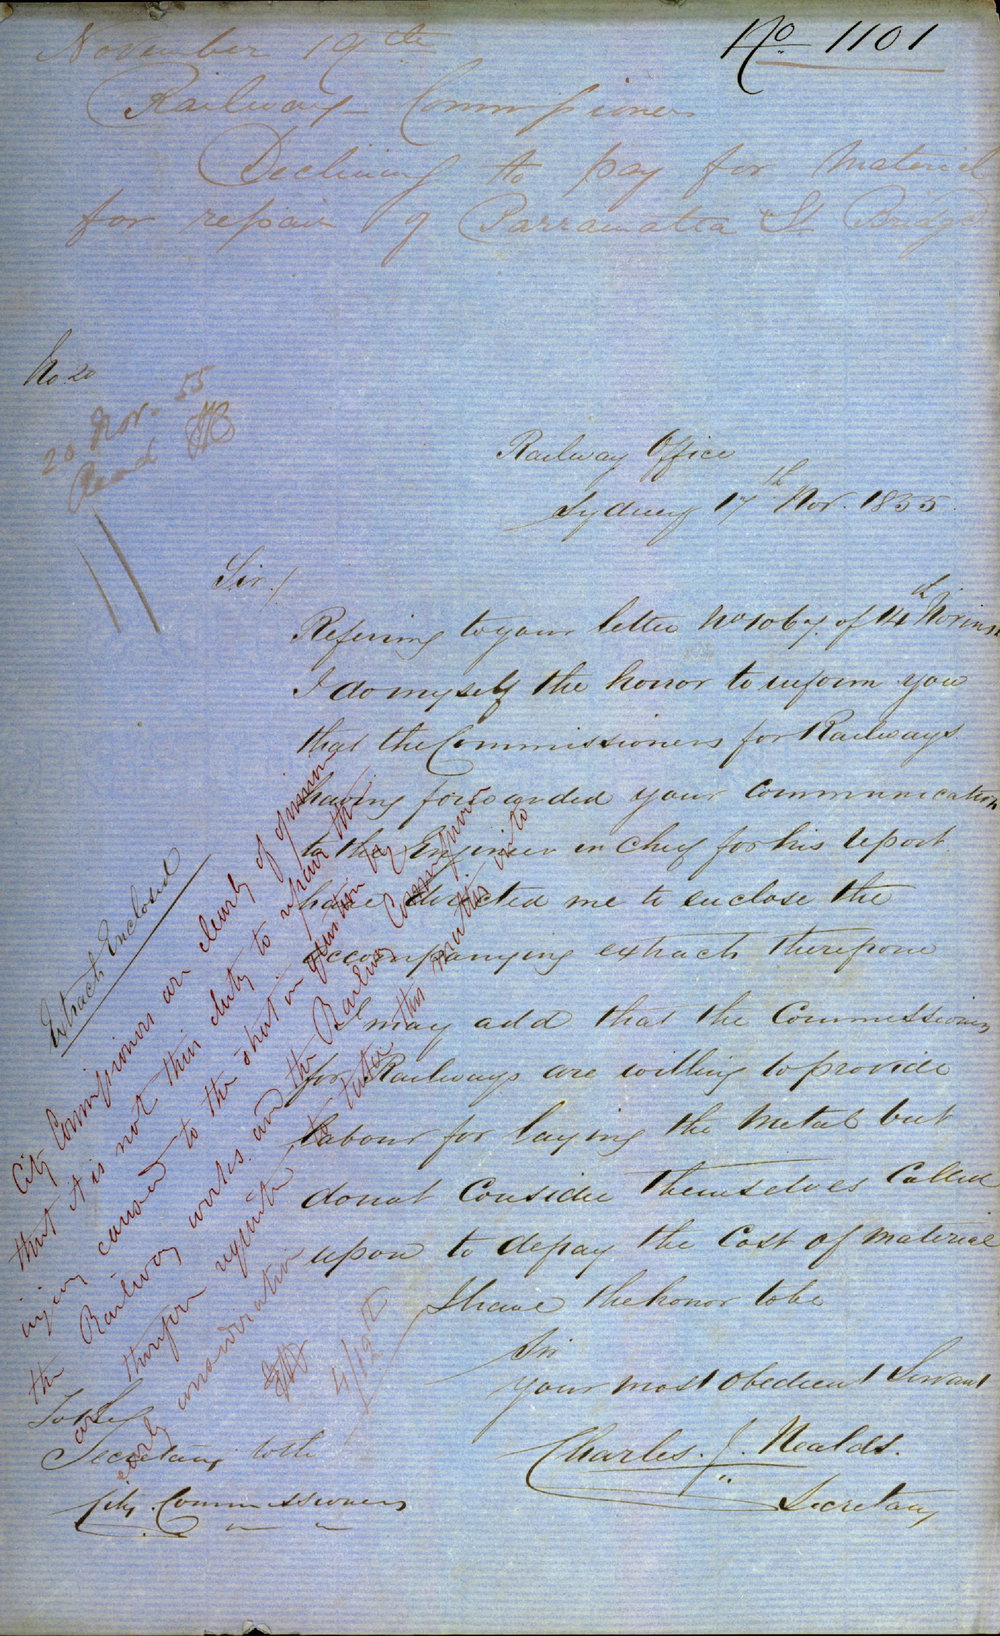 No 1101
November 19th
Railway Commissioners
Declining to pay for Material
for repair of Parramatta St Bridge
No 20
20 Nov. 55
Read
Railway Office
Sydney 17th Nov. 1855
Sir /
Refering to your letter No 1067 of 14th Nov inst
I do myself the honor to inform you
that the Commissioners for Railways
having forwarded your Communication
to the Engineer in Chief for his report
have directed me to enclose the
accompanying extract therefrom
I may add that the Commissioners
for Railways are willing to provide
labour for laying the Metal but
do not Consider themselves Called
upon to defray the Cost of Material
I have the honor to be
Sir
your most obedient Servant
Charles. J. Nealds.
Secretary
To The
Secretary to the
City Commissioners
Extract Enclosed
City Commissioners are clearly of opinion
that it is not their duty to repair the
injury caused to the street in question by
the Railway works and the Railway Commissioners
are therefore requested to take this matter into
early consideration
4/12